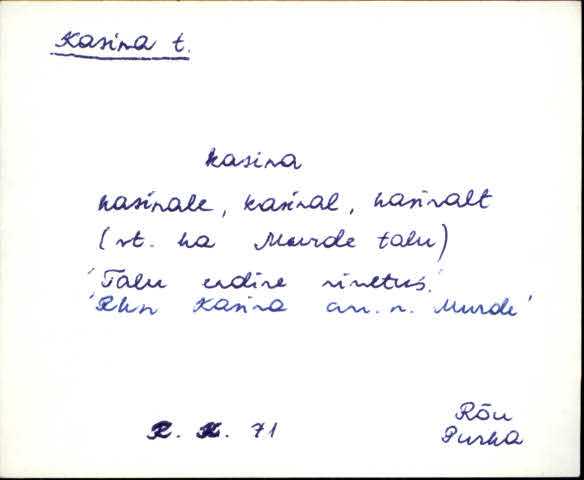 Kasina t.
kasina
kasinale, kasinal, kasinalt
(vt. ka Murde talu)
'Talu endine nimetus.'
'Rkn Kasina am. n. Murde'
R. K. 71
Rõu
Purka